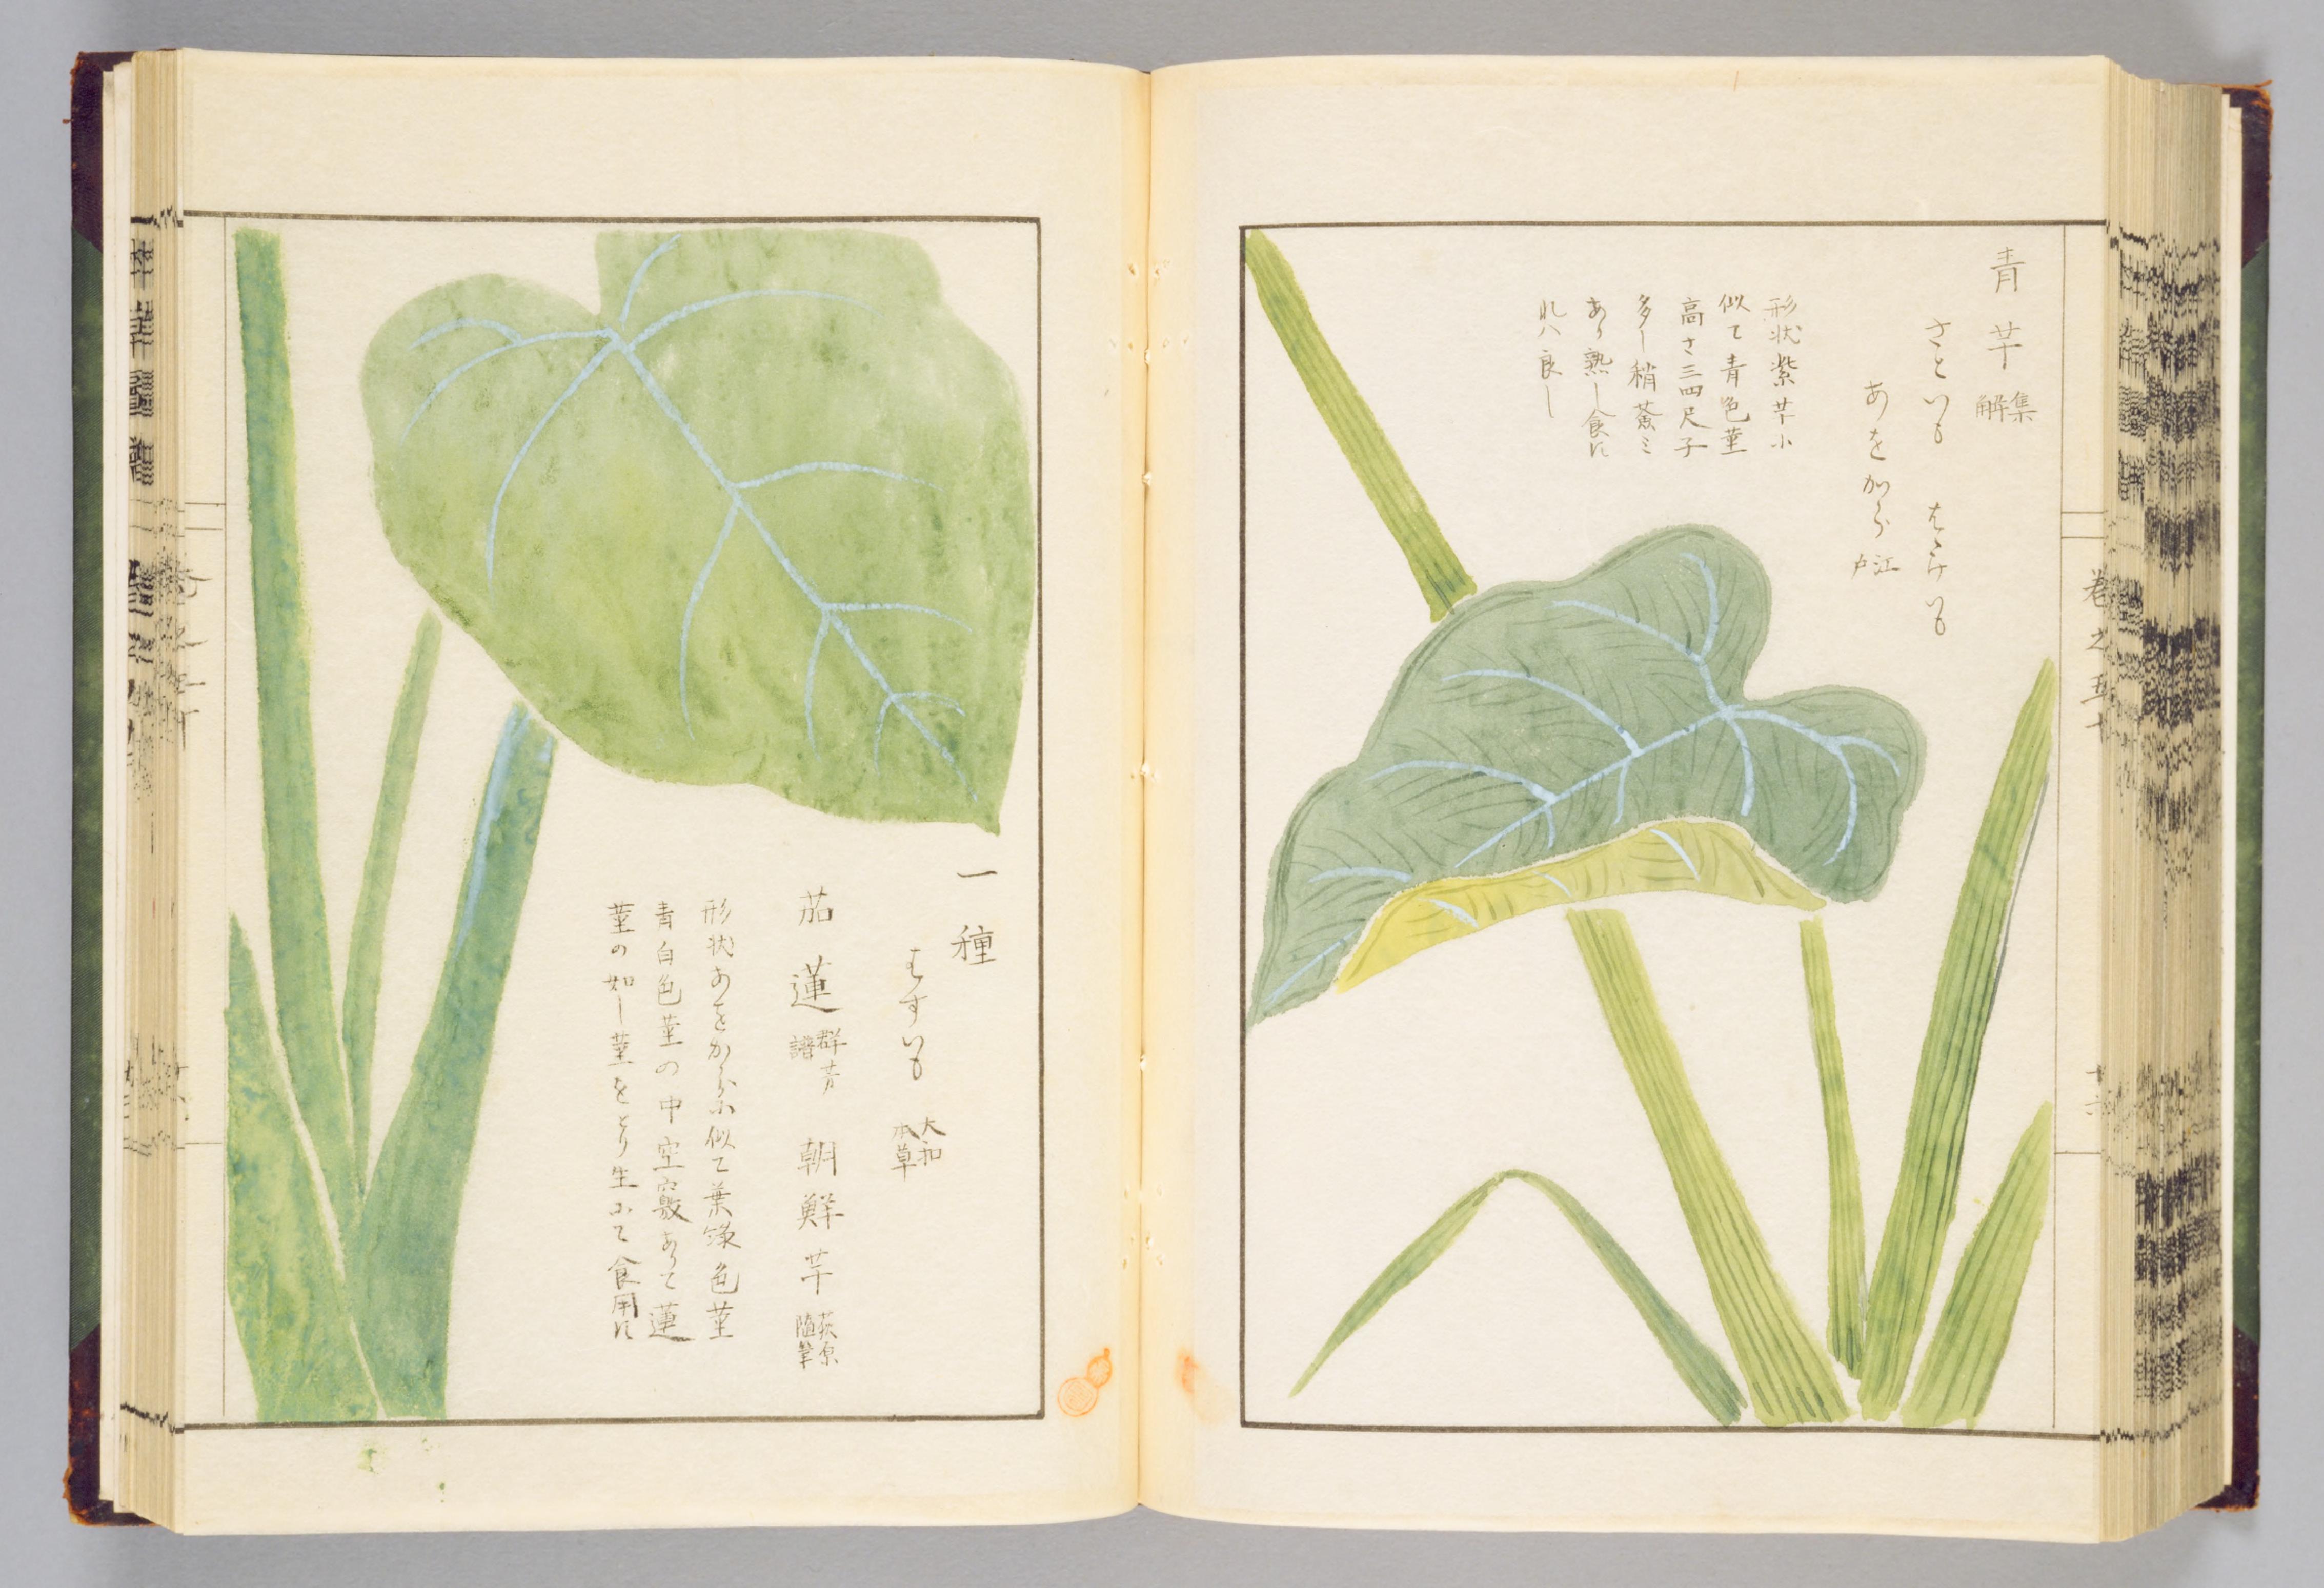 青芋 集解
さといも はたけいも
あをから 江戸
形状紫芋小
似て青色茎
高さ三四尺子
多し稍薟ミ
あり熟し食に
れハ良し
巻之五十
一種
はすいも 大和本草
茄蓮 群芳譜 朝鮮芋 荻原随筆
形状あをから小似て葉緑色茎
青白色茎の中空竅ありて蓮
茎の如し茎をとり生にて食用に